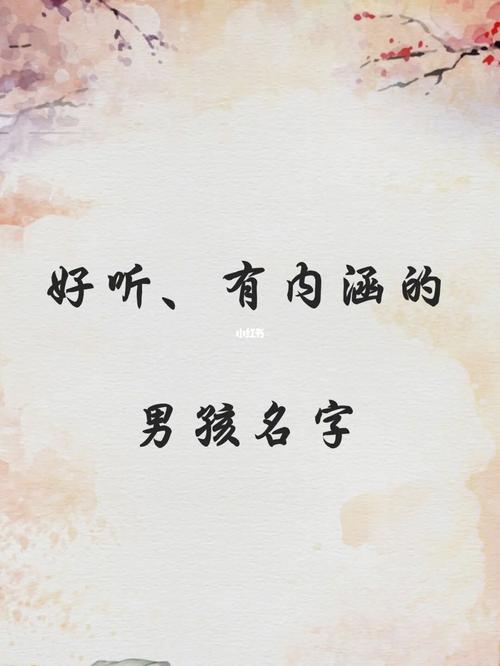 好听、有内涵的
小红书
男孩名字